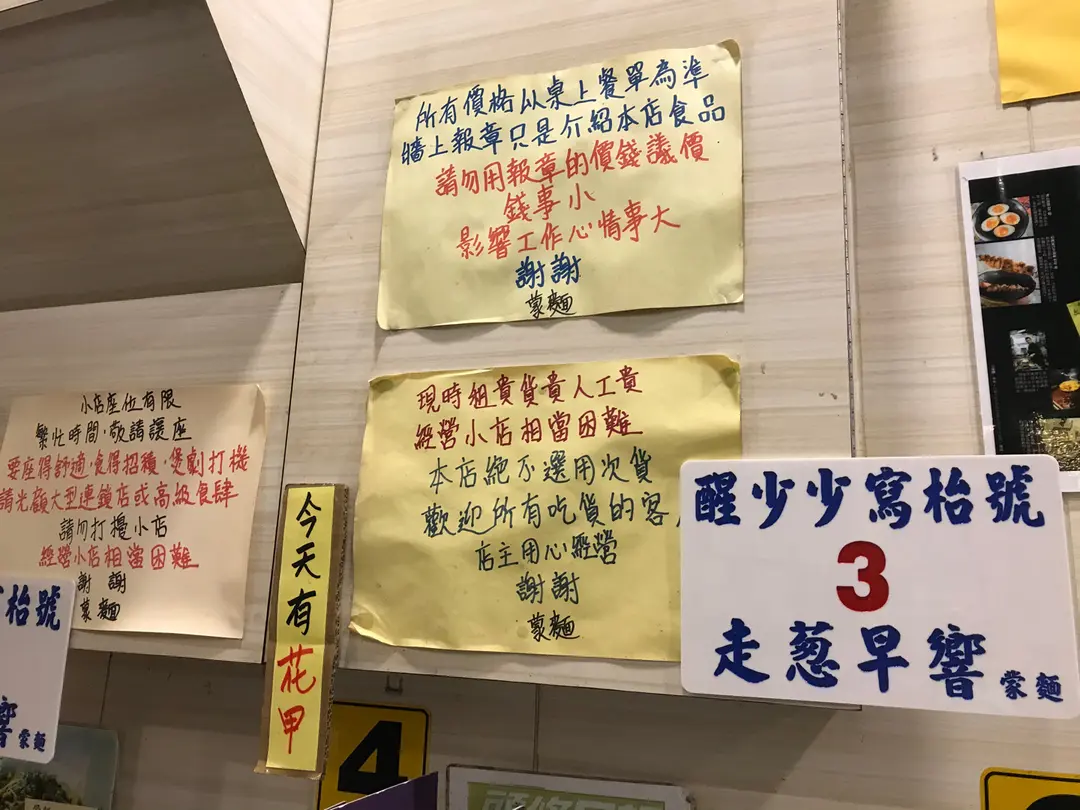 所有價格以桌上餐單為準
牆上報章只是介紹本店食品
請勿用報章的價錢議價
錢事小
影響工作心情事大
謝謝
蒙麵
現時租貴貨貴人工貴
經營小店相當困難
本店絕不選用次貨
歡迎所有吃貨的客
店主用心經營
謝謝
蒙麵
小店座位有限
繁忙時間，敬請讓座
要座得舒適，食得招積，煲劇打機
請光顧大型連鎖店或高級食肆
請勿打擾小店
經營小店相當困難
謝謝
蒙麵
今天有花甲
醒少少寫枱號
3
走葱早響 蒙麵
枱號
響 蒙麵
4